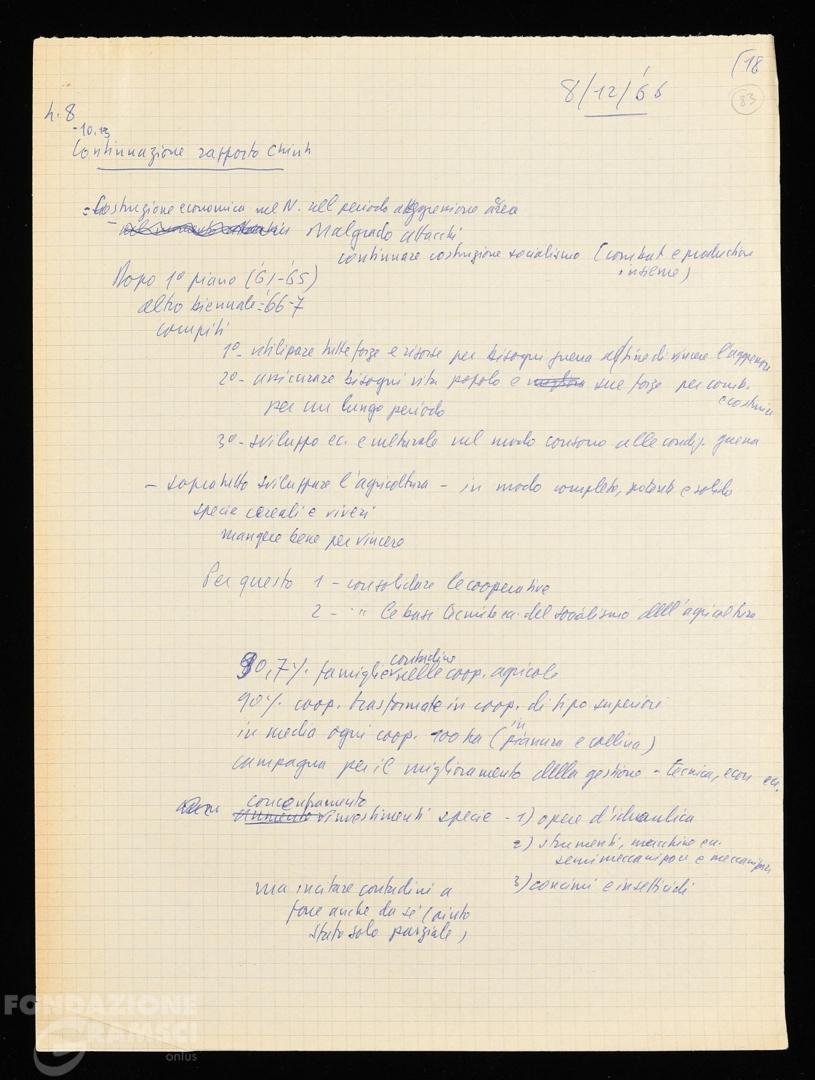 8/12/'66
(18
83
h. 8
-10.
Continuazione rapporto Chinh
= Costruzione economica nel N. nell periodo aggressione aerea
- Malgrado attacchi
continuare costruzione socialismo (combat e production
insieme)
Dopo 1° piano ('61-'65)
altro biennale = '66-7
compiti
1° - utilizzare tutte forze e risorse per bisogni guerra al fine di vincere l'aggressore
2° - assicurare bisogni vita popolo e sue forze per comb.
e costruire
per un lungo periodo
3° - sviluppo ec. e culturale nel modo consono alle condiz. guerra
- sopratutto sviluppare l'agricoltura - in modo completo, potente e solido
specie cereali e viveri
mangere bene per vincere
Per questo 1 - consolidare le cooperative
2 - " le basi tecniche del socialismo dell'agricoltura
80,7% famiglie contadine nelle coop. agricole
90% coop. trasformate in coop. di tipo superiori
in media ogni coop. 100 ha (in pianura e collina)
campagna per il miglioramento della gestione - tecnica, econ ec.
concentramento
aumento investimenti specie - 1) opere d'idraulica
2) strumenti, macchine ec.
semimeccanizzare e meccanizzare
3) concimi e insetticidi
ma incitare contadini a
fare anche da sé (aiuto
Stato solo parziale)
FONDAZIONE
GRAMSCI
onlus